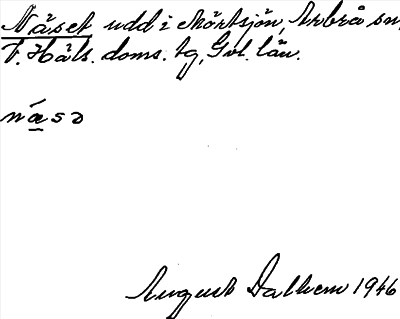 Näset udd i Mörtsjön, Arbrå sn,
V. Häls. doms. tg, Gvl. län.
näsə
August Dalhem 1946